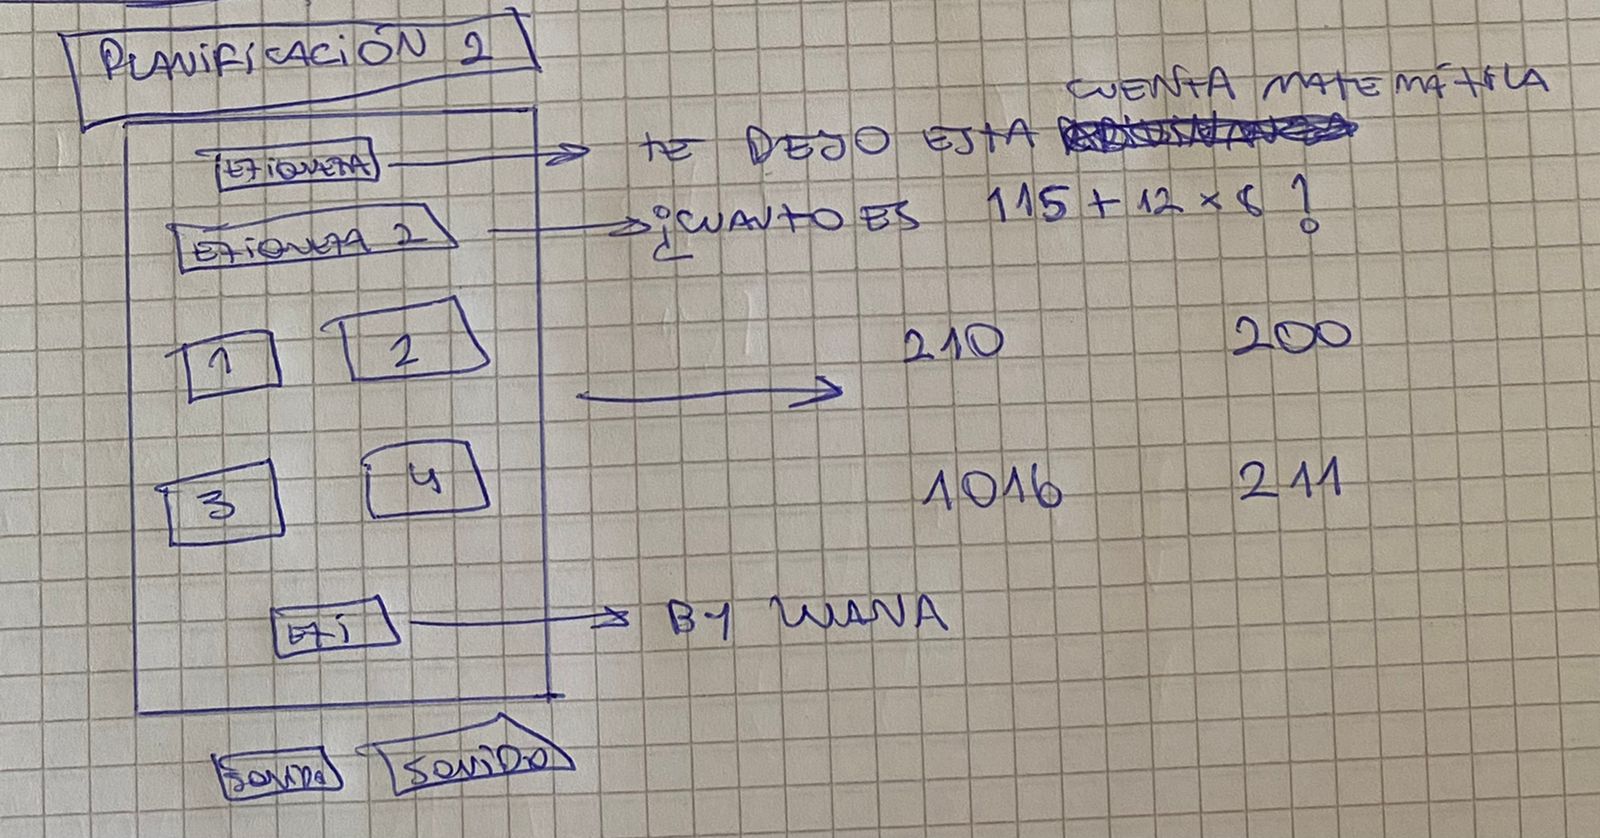 PLANIFICACIÓN 2
CUENTA MATEMÁTICA
ETIQUETA TE DEJO ESTA
ETIQUETA 2 ¿CUANTO ES 115 + 12 x 8 ?
1 2 210 200
3 4 1016 211
ETI BY LUANA
SONIDO SONIDO